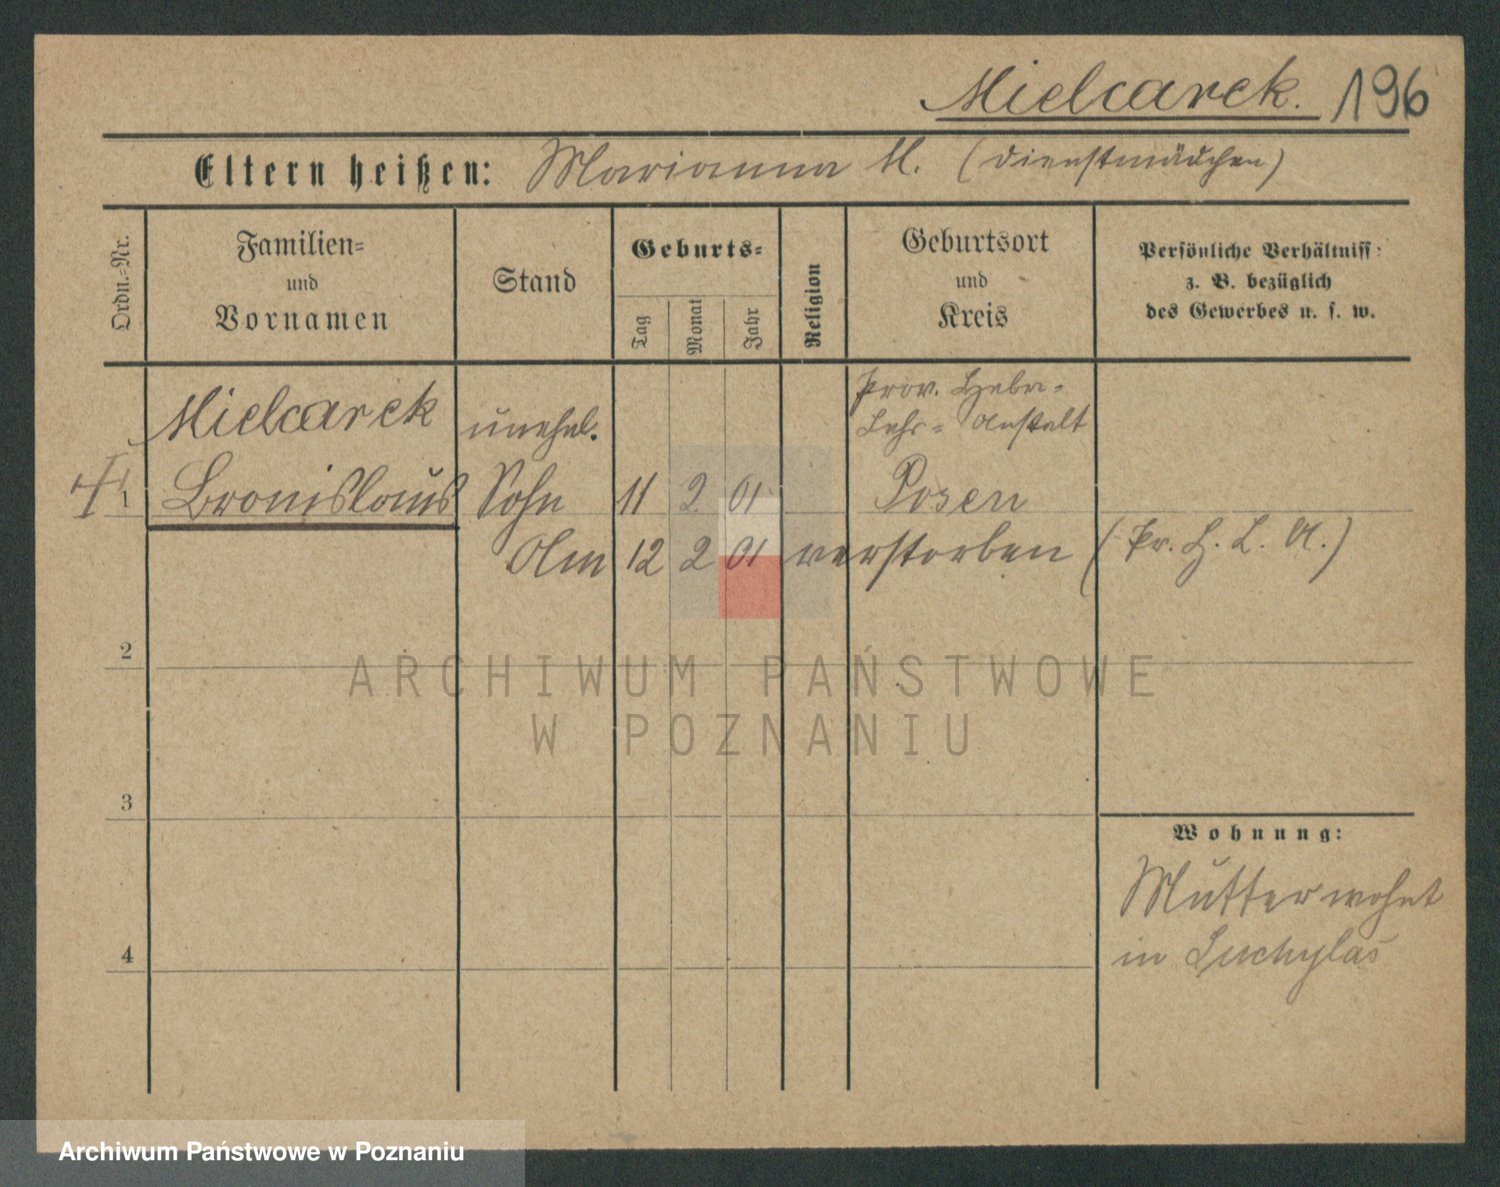 Mielcarek. 196
Eltern heißen: Marianna M. (Dienstmädchen)
Ordn.-Nr.
Familien-
und
Vornamen
Stand
Geburts-
Tag
Monat
Jahr
Religion
Geburtsort
und
Kreis
Persönliche Verhältniss:
z. B. bezüglich
des Gewerbes u. s. w.
Prov. Hebm-
Mielcarek unehel. Lehr- Anstalt
1 Bronislaus Sohn 11 2 01 Posen
Am 12 2 01 verstorben (Pr. H. L. A.)
2
ARCHIWUM PAŃSTWOWE
W POZNANIU
3
Wohnung:
Mutter wohnt
4
in
Archiwum Państwowe w Poznaniu